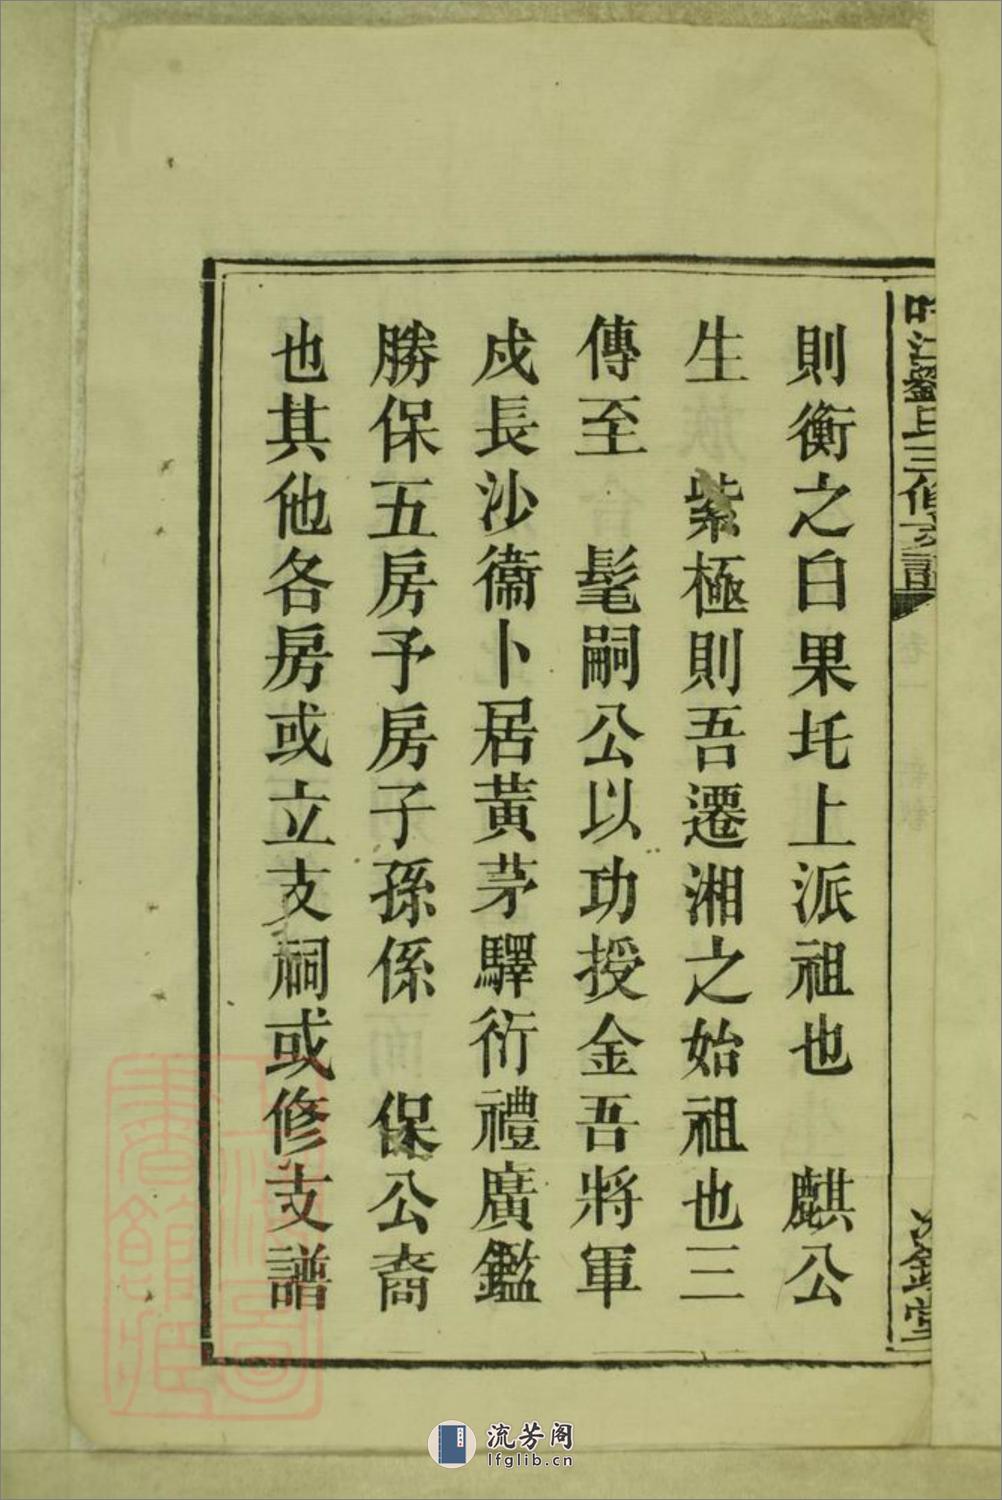 則衡之白果圫上派祖也　麒公
生　紫極則吾遷湘之始祖也三
傳至　髦嗣公以功授金吾將軍
戍長沙衞卜居黃茅驛衍禮廣鑑
勝保五房予房子孫係　保公裔
也其他各房或立支祠或修支譜
江劉氏三修支譜
堂
上海圖書館藏
流芳阁
lfglib.cn